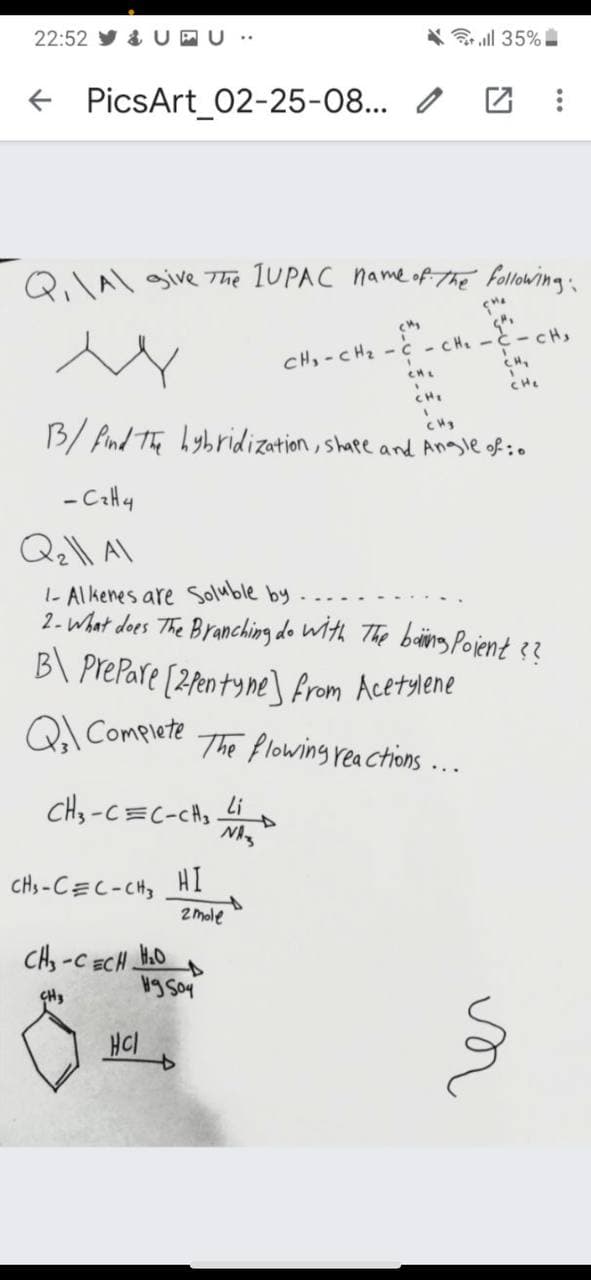 22:52 U U ·· 35%
PicsArt_02-25-08...
Q1\A\ give The IUPAC name of The following:
CH3
CH3 CH2
CH3-CH2-C-CH2-C-CH3
CH2 CH2
CH2 CH2
CH3
B/ find The hybridization, shape and Angle of:
-C2H4
Q2\\ A\
1- Alkenes are Soluble by ............
2- What does The Branching do with The boiing Poient ??
B\ PrePare [2Pentyne] from Acetylene
Q3\ Complete The flowing reactions ...
CH3-C≡C-CH3 Li
NH3
CH3-C≡C-CH3 HI
2mole
CH3-C≡CH H2O
HgSO4
CH3
HCl